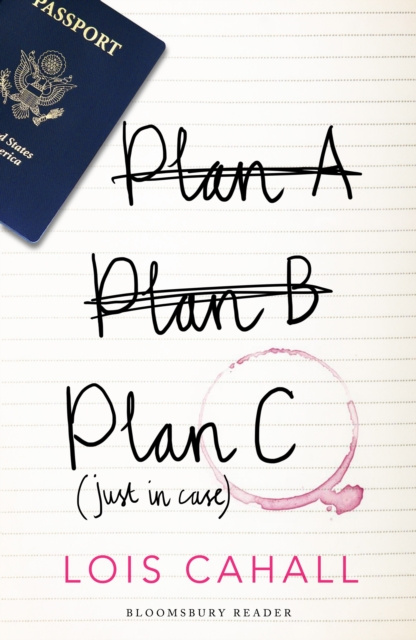 PASSPORT
United States
America
Plan A
Plan B
Plan C
(just in case)
LOIS CAHALL
BLOOMSBURY READER